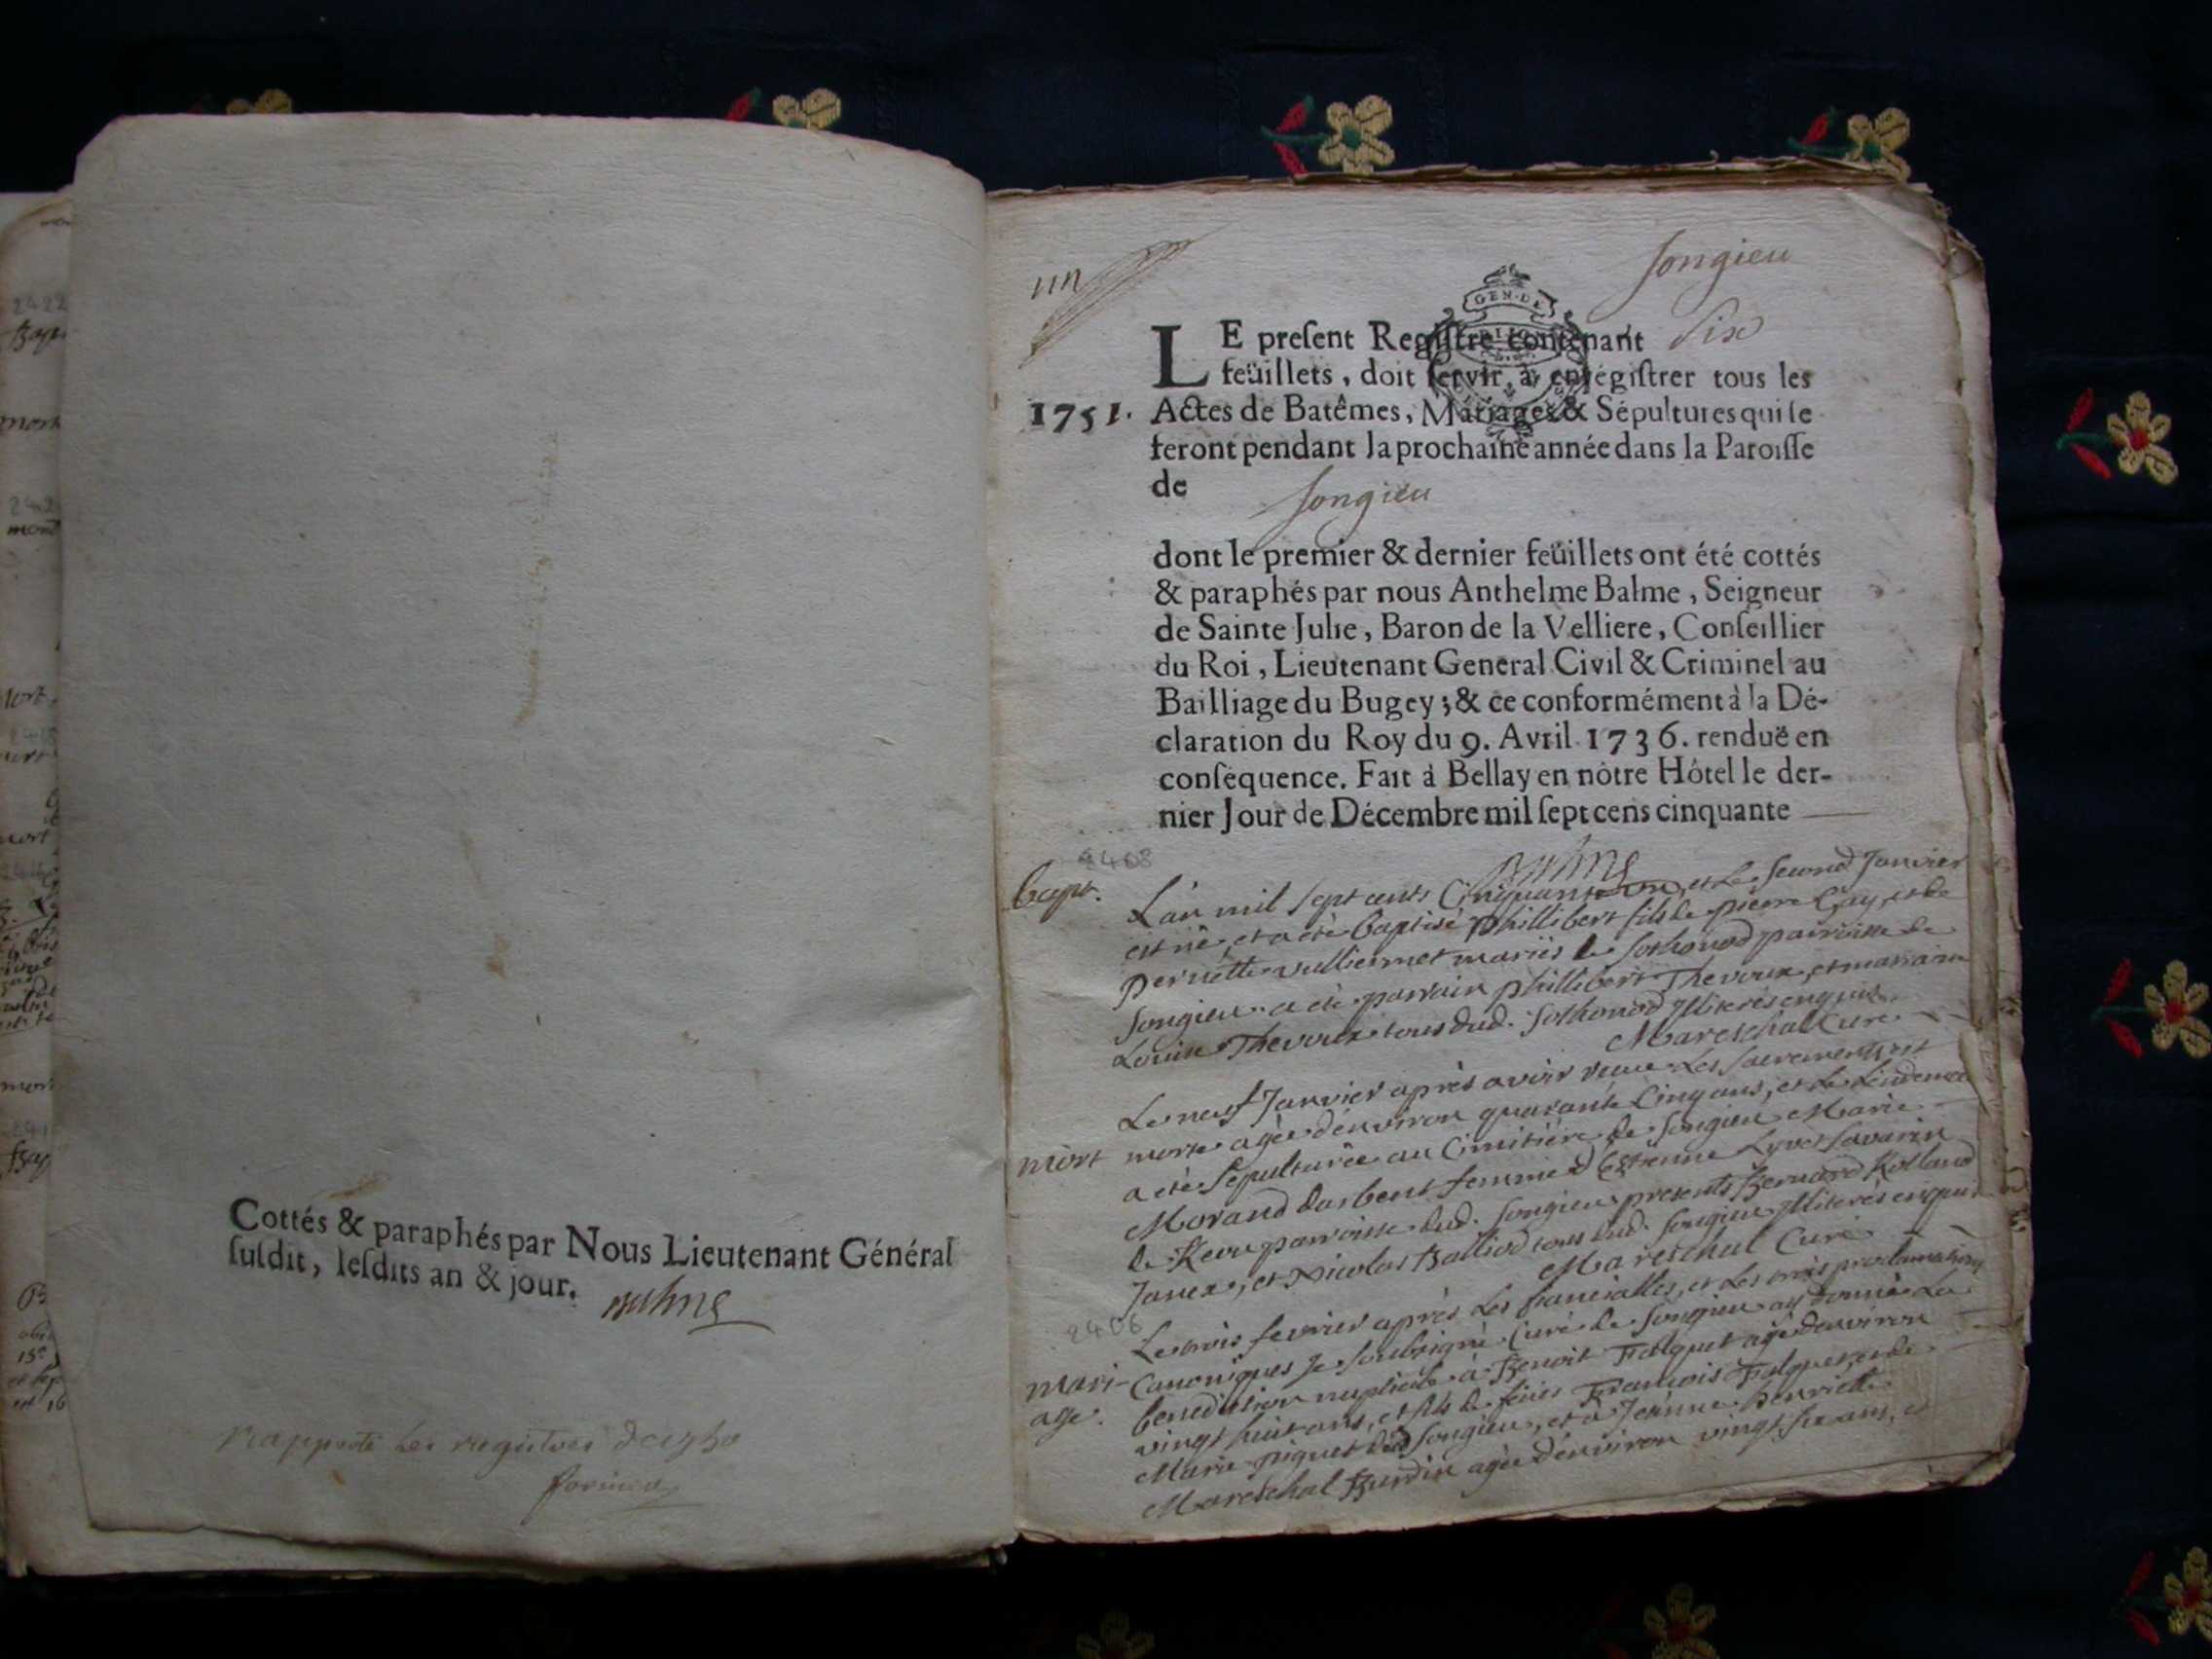 Cottés & paraphés par Nous Lieutenant Général
ſuſdit, leſdits an & jour.
un
Songieu
GEN. DE
DIJON
LE preſent Regiſtre contenant Six
feüillets, doit ſervir, à enrégiſtrer tous les
1751. Actes de Batêmes, Mariages & Sépultures qui ſe
feront pendant la prochaine année dans la Paroiſſe
de Songieu
dont le premier & dernier feüillets ont été cottés
& paraphés par nous Anthelme Balme, Seigneur
de Sainte Julie, Baron de la Velliere, Conſeillier
du Roi, Lieutenant General Civil & Criminel au
Bailliage du Bugey; & ce conformément à la Dé-
claration du Roy du 9. Avril 1736. renduë en
conſéquence. Fait à Bellay en nôtre Hôtel le der-
nier Jour de Décembre mil ſept cens cinquante
Balme
2408
Bapt. L'an mil sept cents Cinquante un, et le second Janvier
est né, et a été baptisé phillibert fils de pierre Gay, et de
pernette vulliermet mariés de Sothonod parroisse de
Songieu. a été parrain phillibert Thevoux, et marraine
Louise Thevoux tous dud. Sothonod Illiterés enquis.
Mareschal Curé
Le neuf Janvier après avoir receu les sacrements est
mort morte agée d'environ quarante Cinq ans, et le lendemain
a été sépulturée au Cimitière de Songieu Marie
Morand darbent femme d'Estienne Lyvet Savarin
parroisse dud. Songieu presents Bernard Rolland
Janex, et Nicolas Balliod tous dud. Songieu Illiterés enquis
Mareschal Curé
2406
Le trois fevrier après les fiancialles, et les trois proclamations
mari- Canoniques je soubsigné Curé de Songieu ay donné la
age. benediction nuptiale à Benoit Falquet agé d'environ
vingt huit ans, et fils de feües François Falquet, et de
Marie piquet dud Songieu, et à Jeanne Henriette
Mareschal Burdin agée d'environ vingt six ans, et